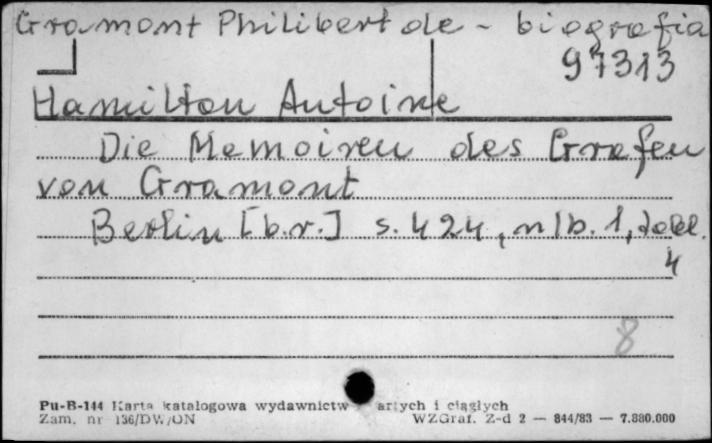 Gramont Philibert de - biografia
97313
Hamilton Antoine
Die Memoiren des Grafen
von Gramont
Berlin [b.r.] s. 424, nlb. 1, tabl.
4
8
Pu-B-144 Karta katalogowa wydawnictw artych i ciągłych
Zam. nr 136/DW/ON WZGraf. Z-d 2 — 844/83 — 7.880.000